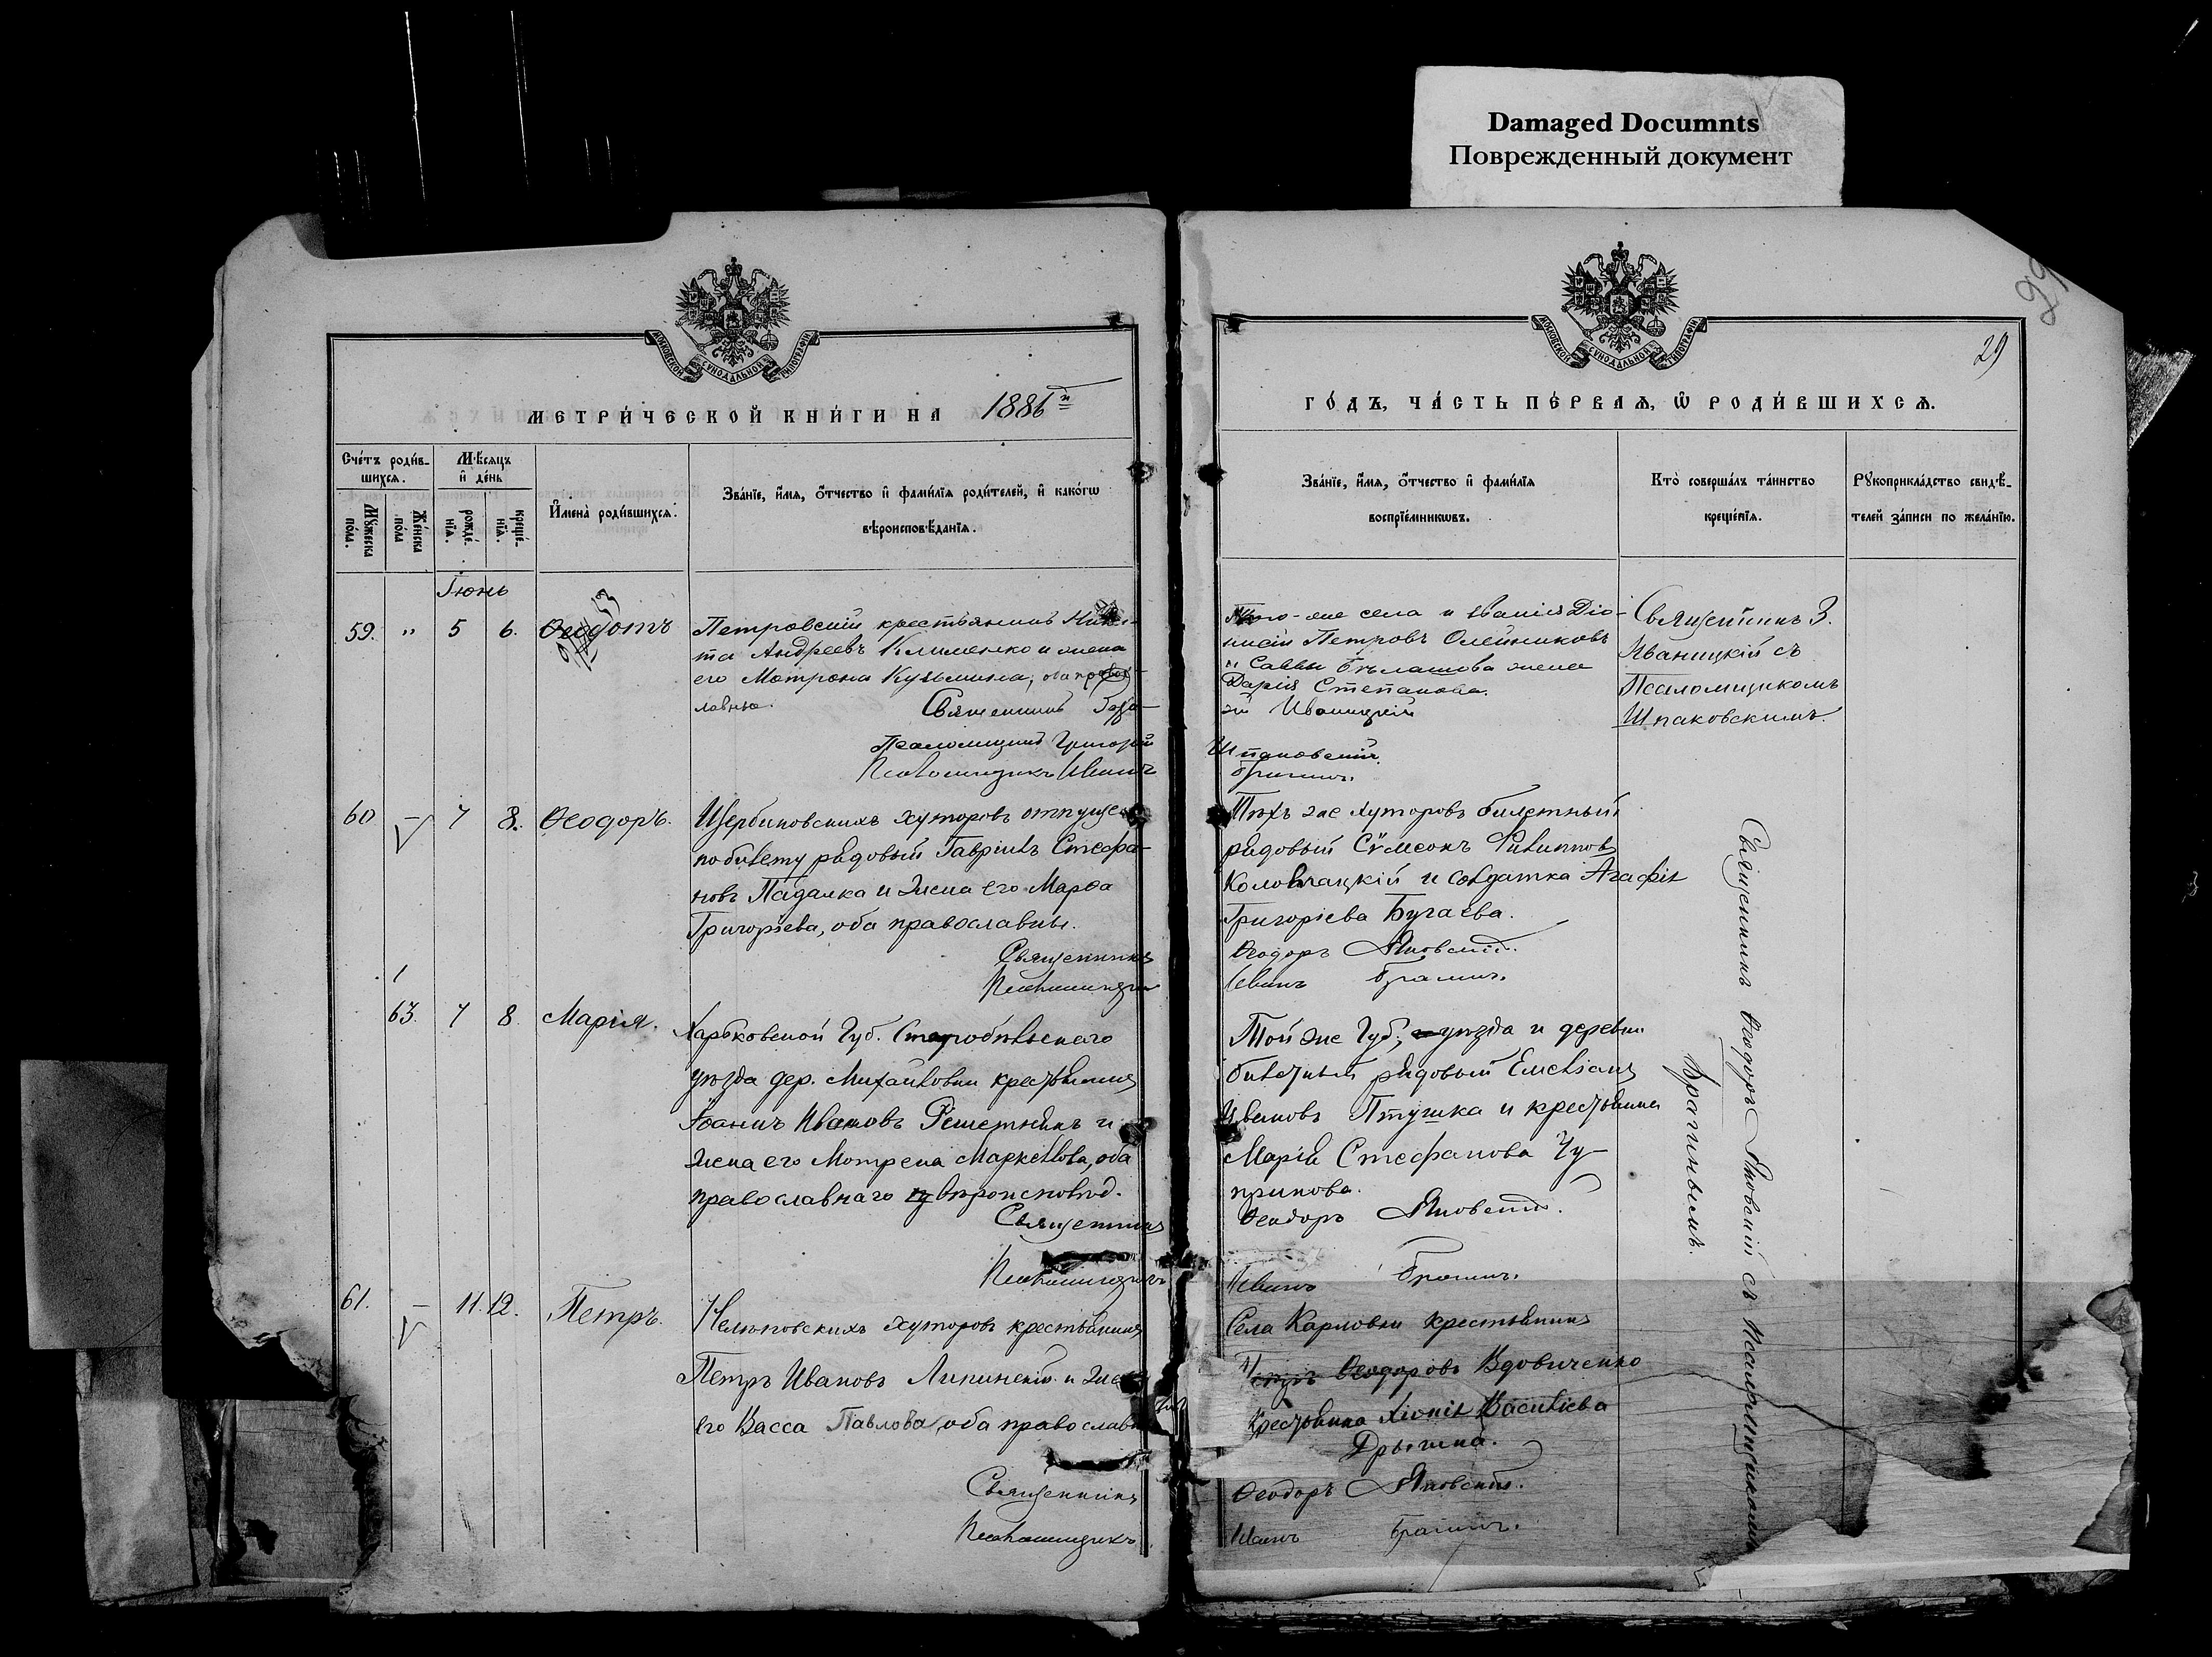 Damaged Documnts
Поврежденный документ
МОСКОВСКОЙ СѴНОДАЛЬНОЙ ТИПОГРАФІИ
МЕТРИ́ЧЕСКОЙ КНИ́ГИ НА 1886й
Сче́тъ роди́в-
шихсѧ.
Мѣ́сѧцъ
и҆ де́нь
Мꙋ́жеска
по́ла.
Же́нска
по́ла
рожде́-
нїѧ.
креще́-
нїѧ.
И҆мена̀ роди́вшихсѧ.
Зва́нїе, и҆́мѧ, ѻ҆́тчество и҆ фами́лїѧ роди́телей, и҆ како́гѡ
вѣроисповѣ́данїѧ.
Іюнь
59. " 5 6. Ѳеодотъ
Петровскій крестьянинъ Ники-
та Андреевъ Клименко и жена
его Матрона Кузьмина, оба правос-
лавные.
Священникъ
Псаломщикъ Григорій
Псаломщикъ Иванъ
60 – 7 8. Ѳеодоръ.
Щербиновскихъ хуторовъ отпущен.
по билету рядовый Гавріилъ Стефа-
новъ Падалка и жена его Марѳа
Григоріева, оба православны.
Священникъ
Псаломщикъ
63. 7 8 Марія.
Харьковской Губ. Старобѣльскаго
уѣзда дер. Михайловки крестьянинъ
Іоаннъ Ивановъ Решетникъ и
жена его Мотрена Маркелова, оба
православнаго вѣроисповѣд.
Священникъ
Псаломщикъ
61. – 11. 12. Петръ.
Нелѣповскихъ хуторовъ крестьянинъ
Петръ Ивановъ Липинскій и жена
его Васса Павлова, оба православн
Священникъ
Псаломщикъ
29
МОСКОВСКОЙ СѴНОДАЛЬНОЙ ТИПОГРАФІИ
29
ГО́ДЪ, ЧА́СТЬ ПЕ́РВАѦ, Ѡ҆ РОДИ́ВШИХСѦ.
Зва́нїе, и҆́мѧ, ѻ҆́тчество и҆ фами́лїѧ
воспрїе́мникѡвъ.
Кто̀ соверша́лъ та́инство
креще́нїѧ.
Рꙋкоприкла́дство свидѣ́-
телей за́писи по жела́нїю.
того-же села и званія Діо-
нисій Петровъ Олейниковъ
и Саввы Бѣлашова жена
Дарія Степанова.
Иваницкій
Шпаковскій.
Брагинъ.
Священникъ З.
Иваницкій съ
Псаломщикомъ
Шпаковскимъ.
Тѣхъ же хуторовъ билетный
рядовый Сѵмеонъ Филипповъ
и солдатка Агафія
Григоріева Бугаева.
Ѳеодоръ Яновскій.
Иванъ Брагинъ.
Той же Губ., уѣзда и деревни
билетный рядовый Емеліанъ
Ивановъ Птушка и крестьянка
Марія Стефанова Чу-
прикова.
Ѳеодоръ Яновскій.
Иванъ Брагинъ.
Села Карловки крестьянинъ
Петръ Ѳеодоровъ Вдовиченко
крестьянка Хіонія Василіева
Ѳеодоръ Яновскій.
Иванъ Брагинъ.
Священникъ Ѳеодоръ Яновскій съ Псаломщикомъ
Брагинымъ.